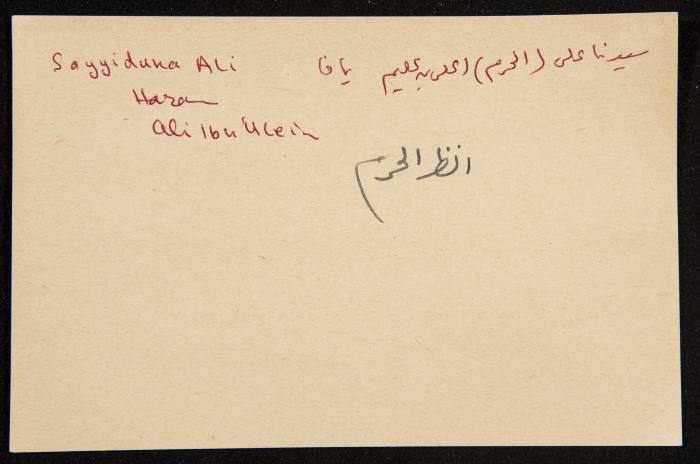 Sayyiduna Ali سيدنا على (الحرم) اعلى به عليم يافا
Haram
Ali Ibn Ulein
انظر الحرم